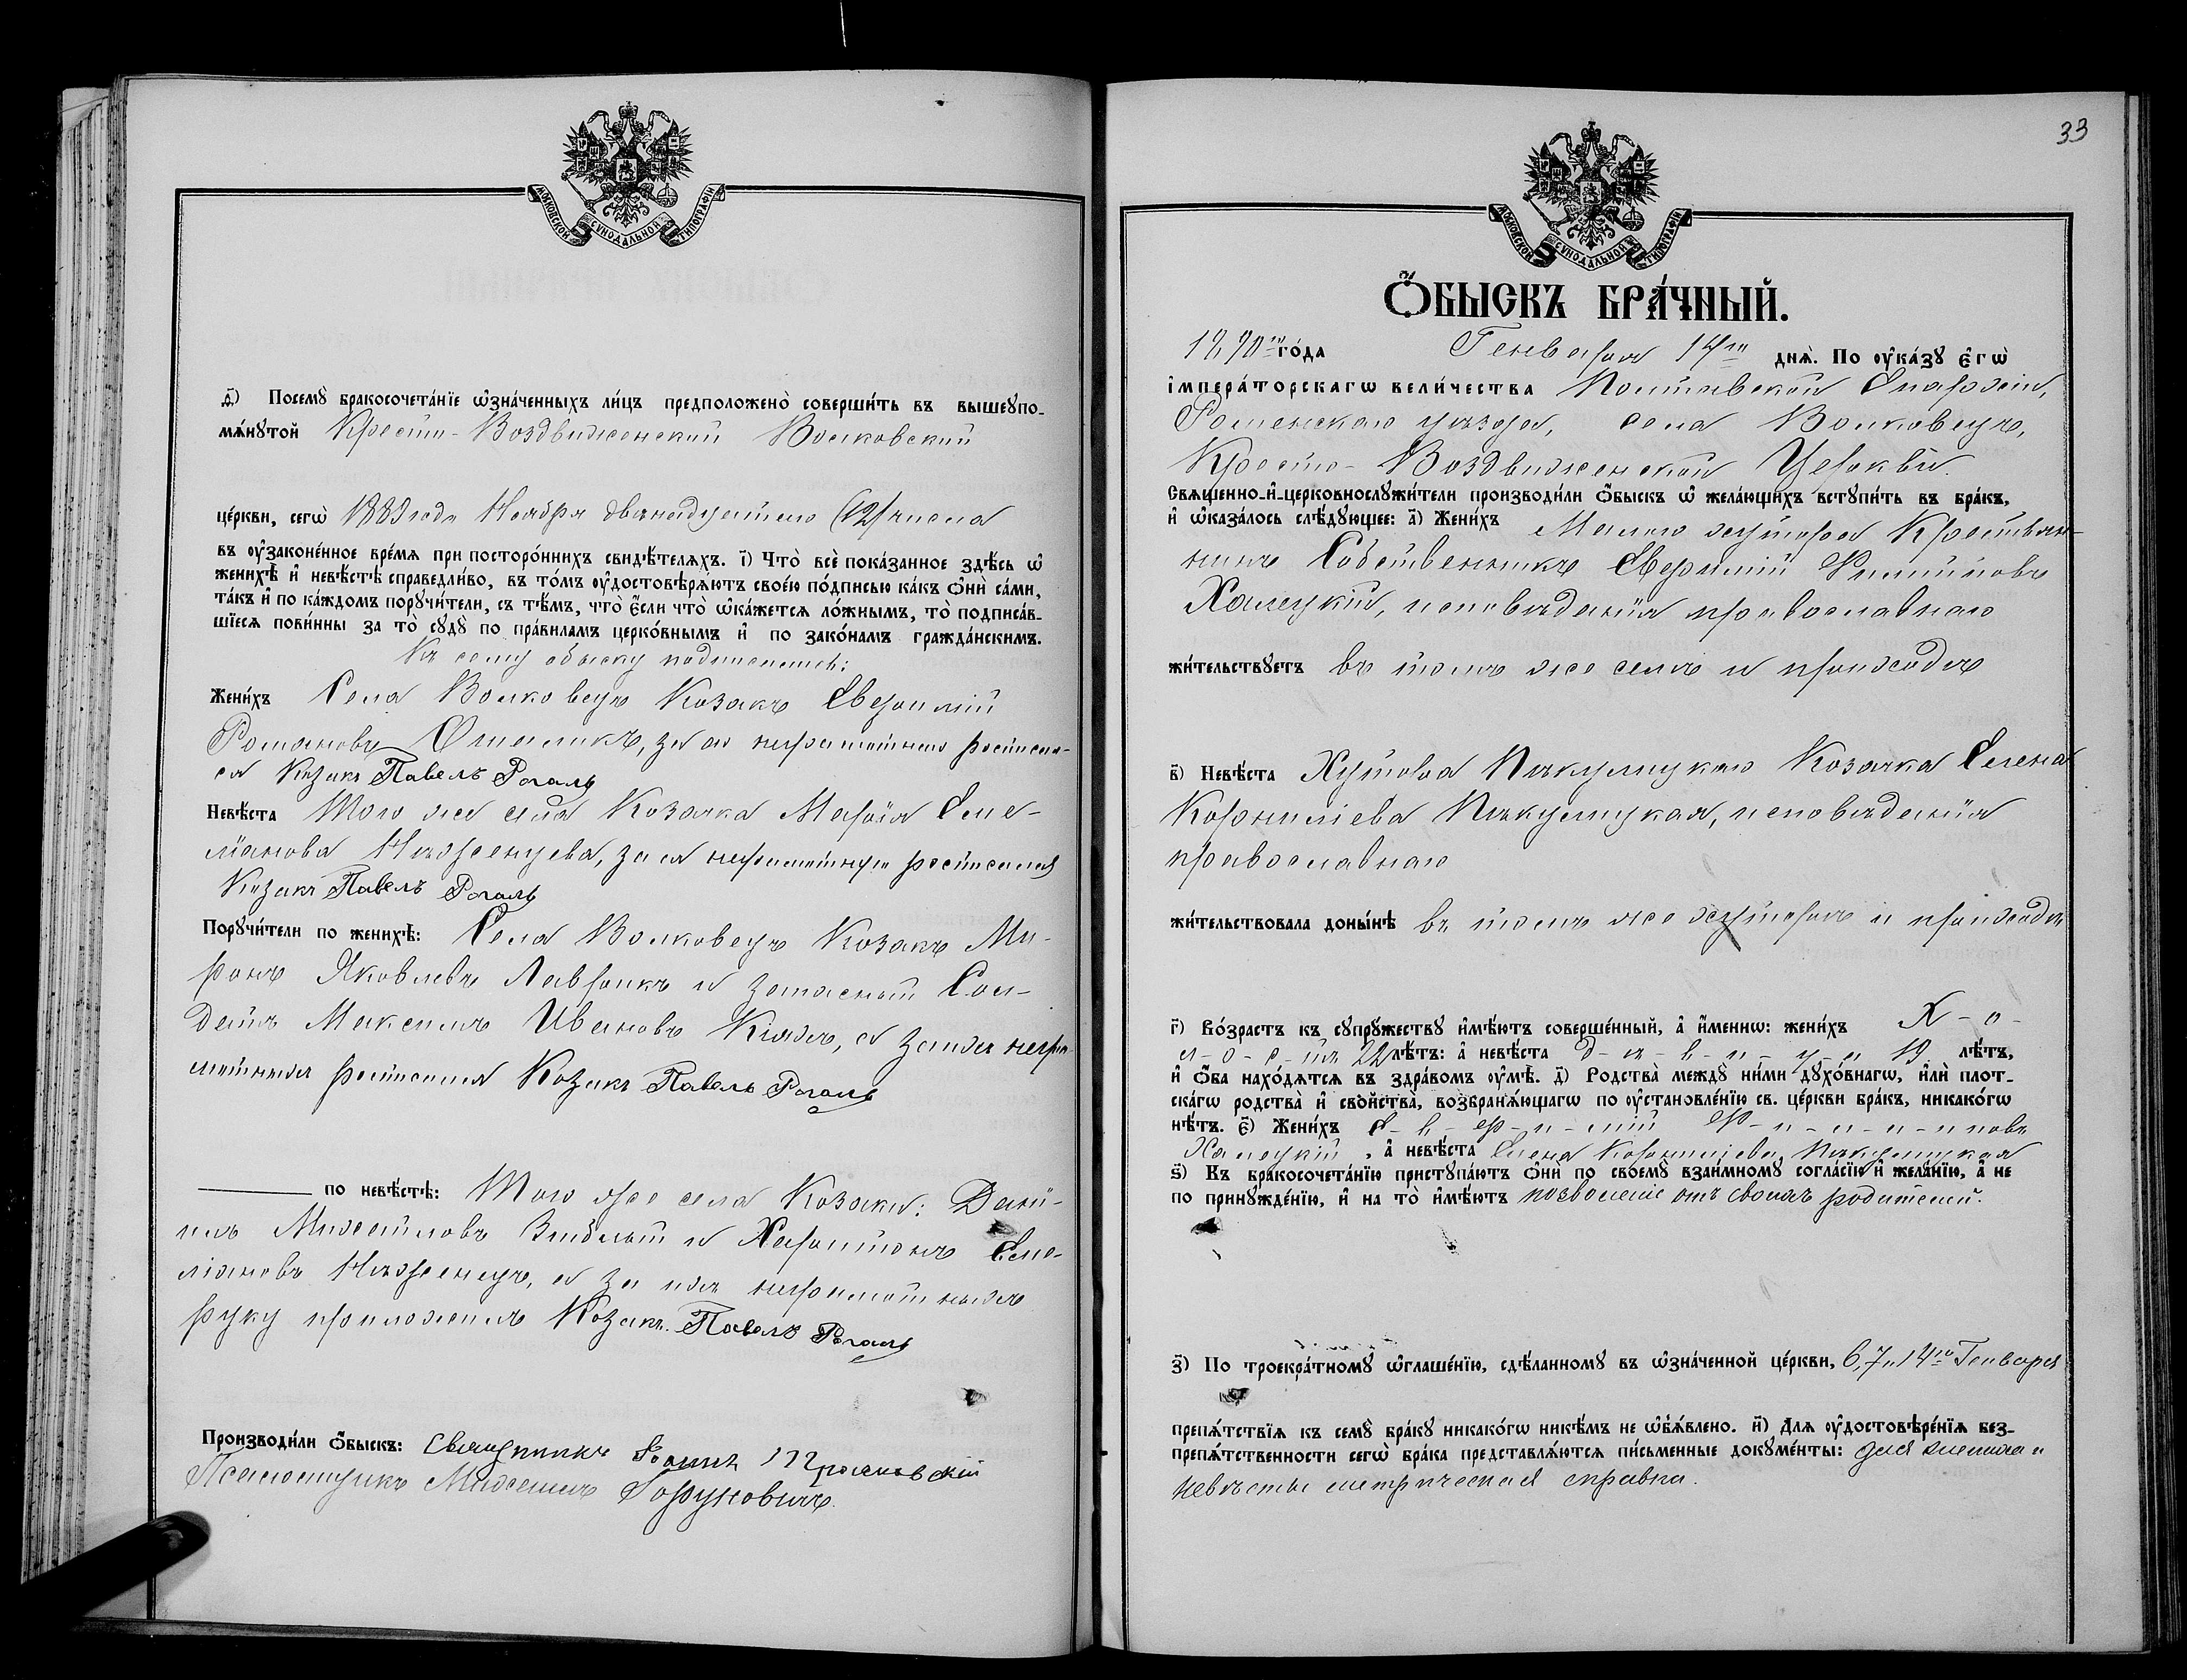 МОСКОВСКОЙ СУНОДАЛЬНОЙ ТИПОГРАФІИ
д҃) Посемꙋ̀ бракосочета́нїе ѡ҆зна́ченныхъ ли́цъ предположено̀ соверши́ть въ вышеꙋпо-
мѧ́нꙋтой Кресто-Воздвиженский Волковский
це́ркви, сегѡ̀ 1889 года Ноября двенадцатого (12) числа
въ ᲂу҆законе́нное вре́мѧ при посторо́ннихъ свидѣ́телѧхъ. і҃) Что̀ всѐ пока́занное здѣ́сь ѡ҆
женихѣ̀ и҆ невѣ́стѣ справедли́во, въ то́мъ ᲂу҆достовѣрѧ́ютъ свое́ю по́дписью ка́къ ѻ҆нѝ са́ми,
та́къ и҆ по ка́ждомъ порꙋчи́тели, съ тѣ́мъ, что̀ є҆́сли что̀ ѡ҆ка́жетсѧ ло́жнымъ, то̀ подписа́в-
шїесѧ пови́нны за то̀ сꙋдꙋ̀ по пра́виламъ церко́внымъ и҆ по зако́намъ гражда́нскимъ.
Къ сему обыску подписались:
Жени́хъ Села Волковецъ Козакъ Евфимій
Романовъ Ошеликъ, за его неграмотнаго росписал-
ся Козакъ Павелъ Рогаль
Невѣ́ста Того же села Козачка Марѳія Еме-
ліанова Нѣженцева, за ея неграмотную росписался
Козакъ Павелъ Рогаль
Порꙋчи́тели по женихѣ̀: Села Волковецъ Козакъ Ми-
ронъ Яковлевъ Лаврикъ и запасный Сол-
датъ Максимъ Ивановъ а за нихъ негра-
мотныхъ росписался Козакъ Павелъ Рогаль
по невѣ́стѣ: Того же села Козаки: Дани-
илъ Михайловъ и Харитонъ Еме-
ліановъ Нѣженецъ, а за нихъ неграмотныхъ
руку приложилъ Козакъ Павелъ Рогаль
Производи́ли ѻ҆́быскъ: Священникъ Іоаннъ
Псаломщикъ Михаилъ
33
МОСКОВСКОЙ СУНОДАЛЬНОЙ ТИПОГРАФІИ
Ѻ҆́БЫСКЪ БРА́ЧНЫЙ.
1890го го́да Генваря 14го днѧ̀. По ᲂу҆ка́зꙋ є҆гѡ̀
і҆мпера́торскагѡ вели́чества Полтавской Епархіи,
Роменскаго уѣзда, села Волковецъ,
Кресто-Воздвиженской Церкви
Свѧще́нно-и҆-церковнослꙋжи́тели производи́ли ѻ҆́быскъ ѡ҆ жела́ющихъ встꙋпи́ть въ бра́къ,
и҆ ѡ҆каза́лось слѣ́дꙋющее: а҃) Жени́хъ хутора Крестьян-
нинъ Собственникъ Евфимій Филиповъ
Халецкій, исповѣданія православнаго
жи́тельствꙋетъ въ томъ же селѣ и приходѣ
в҃) Невѣ́ста Хутора Козачка Елена
Корниліева исповѣданія
православнаго
жи́тельствовала доны́нѣ въ томъ же хуторѣ и приходѣ
г҃) Во́зрастъ къ сꙋпрꙋ́жествꙋ и҆мѣ́ютъ соверше́нный, а҆ и҆́меннѡ: жени́хъ Х-о-
л-о-с-тъ 22 лѣ́тъ: а҆ невѣ́ста д-ѣ-в-и-ц-а 19 лѣ́тъ,
и҆ ѻ҆́ба нахо́дѧтсѧ въ здра́вомъ ᲂу҆мѣ̀. д҃) Родства̀ междꙋ̀ ни́ми дꙋхо́внагѡ, и҆лѝ пло́т-
скагѡ родства̀ и҆ сво́йства̀, возбранѧ́ющагѡ по ᲂу҆становле́нїю св. це́ркви бра́къ, никако́гѡ
нѣ́тъ. є҃) Жени́хъ Е-в-ф-и-мій Ф-и-л-и-повъ
Халецкій, а҆ невѣ́ста Елена Корниліева
ѕ҃) Къ бракосочета́нїю пристꙋпа́ютъ ѻ҆нѝ по своемꙋ̀ взаи́мномꙋ согла́сїю и҆ жела́нїю, а҆ не
по принꙋжде́нїю, и҆ на то̀ и҆мѣ́ютъ позволеніе отъ своихъ родителей.
з҃) По троекра́тномꙋ ѡ҆глаше́нїю, сдѣ́ланномꙋ въ ѡ҆зна́ченной це́ркви, 6, 7 и 14го Генваря
препѧ́тствїѧ къ семꙋ̀ бра́кꙋ никако́гѡ никѣ́мъ не ѡ҆б̾ѧ́влено. и҃) Для ᲂу҆достовѣре́нїѧ без-
препѧ́тственности сегѡ̀ бра́ка представлѧ́ютсѧ пи́сьменные докꙋме́нты: для жениха и
невѣсты метрическая справка.